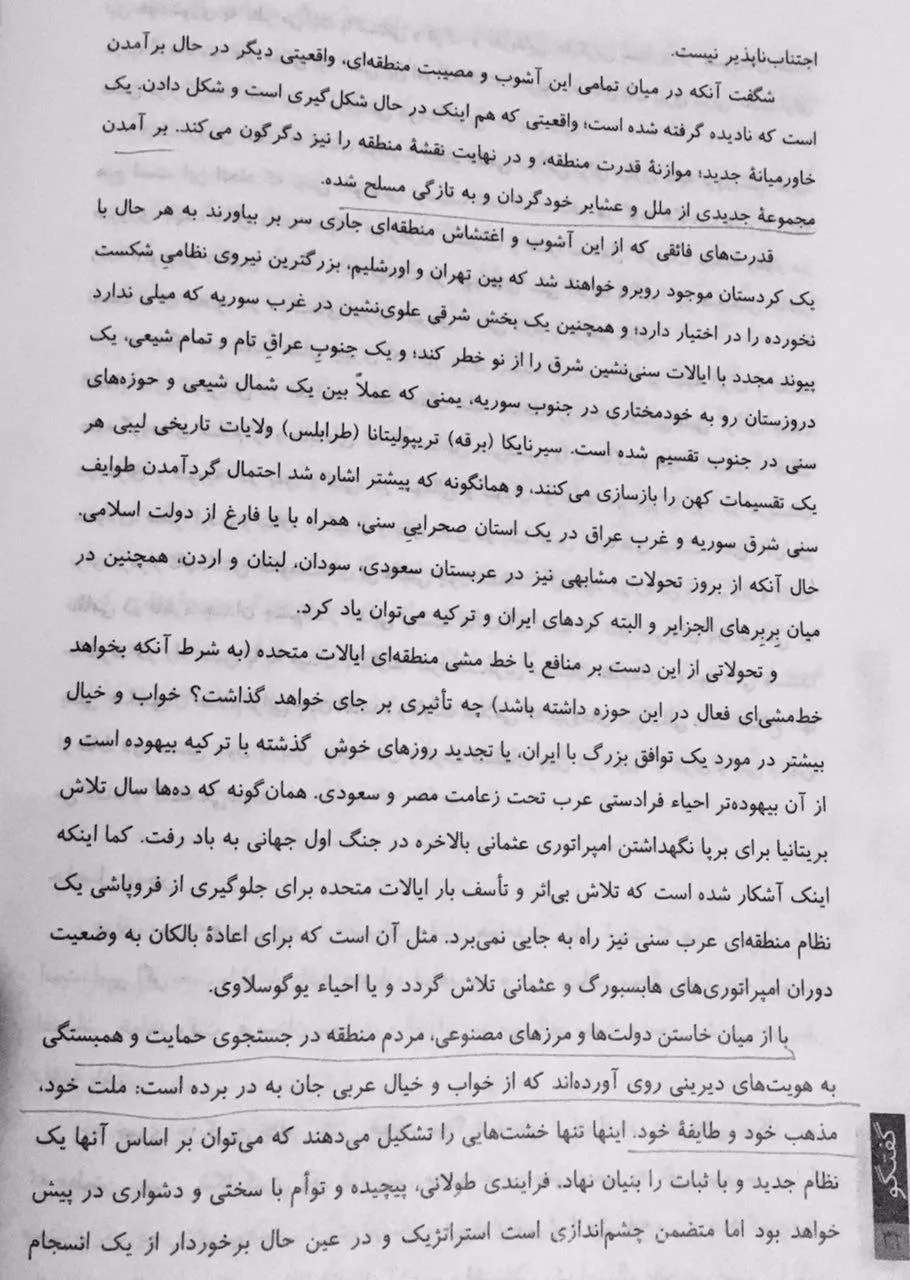 اجتناب‌ناپذیر نیست.
شگفت آنکه در میان تمامی این آشوب و مصیبت منطقه‌ای، واقعیتی دیگر در حال برآمدن
است که نادیده گرفته شده است؛ واقعیتی که هم اینک در حال شکل‌گیری است و شکل دادن. یک
خاورمیانهٔ جدید؛ موازنهٔ قدرت منطقه، و در نهایت نقشهٔ منطقه را نیز دگرگون می‌کند. بر آمدن
مجموعهٔ جدیدی از ملل و عشایر خودگردان و به تازگی مسلح شده.
قدرت‌های فائقی که از این آشوب و اغتشاش منطقه‌ای جاری سر بر بیاورند به هر حال با
یک کردستان موجود روبرو خواهند شد که بین تهران و اورشلیم، بزرگترین نیروی نظامیِ شکست
نخورده را در اختیار دارد؛ و همچنین یک بخش شرقی علوی‌نشین در غرب سوریه که میلی ندارد
پیوند مجدد با ایالات سنی‌نشین شرق را از نو خطر کند؛ و یک جنوبِ عراقِ تام و تمام شیعی، یک
دروزستان رو به خودمختاری در جنوب سوریه، یمنی که عملاً بین یک شمال شیعی و حوزه‌های
سنی در جنوب تقسیم شده است. سیرنایکا (برقه) تریپولیتانا (طرابلس) ولایات تاریخی لیبی هر
یک تقسیمات کهن را بازسازی می‌کنند، و همانگونه که پیشتر اشاره شد احتمال گردآمدن طوایف
سنی شرق سوریه و غرب عراق در یک استان صحراییِ سنی، همراه با یا فارغ از دولت اسلامی.
حال آنکه از بروز تحولات مشابهی نیز در عربستان سعودی، سودان، لبنان و اردن، همچنین در
میان بِربِرهای الجزایر و البته کردهای ایران و ترکیه می‌توان یاد کرد.
و تحولاتی از این دست بر منافع یا خط مشی منطقه‌ای ایالات متحده (به شرط آنکه بخواهد
خط‌مشی‌ای فعال در این حوزه داشته باشد) چه تأثیری بر جای خواهد گذاشت؟ خواب و خیال
بیشتر در مورد یک توافق بزرگ با ایران، یا تجدید روزهای خوش گذشته با ترکیه بیهوده است و
از آن بیهوده‌تر احیاء فرادستی عرب تحت زعامت مصر و سعودی. همان‌گونه که ده‌ها سال تلاش
بریتانیا برای برپا نگهداشتن امپراتوری عثمانی بالاخره در جنگ اول جهانی به باد رفت. کما اینکه
اینک آشکار شده است که تلاش بی‌اثر و تأسف بار ایالات متحده برای جلوگیری از فروپاشی یک
نظام منطقه‌ای عرب سنی نیز راه به جایی نمی‌برد. مثل آن است که برای اعادهٔ بالکان به وضعیت
دوران امپراتوری‌های هابسبورگ و عثمانی تلاش گردد و یا احیاء یوگوسلاوی.
با از میان خاستن دولت‌ها و مرزهای مصنوعی، مردم منطقه در جستجوی حمایت و همبستگی
به هویت‌های دیرینی روی آورده‌اند که از خواب و خیال عربی جان به در برده است: ملت خود،
مذهب خود و طایفهٔ خود. اینها تنها خشت‌هایی را تشکیل می‌دهند که می‌توان بر اساس آنها یک
نظام جدید و با ثبات را بنیان نهاد. فرایندی طولانی، پیچیده و توأم با سختی و دشواری در پیش
خواهد بود اما متضمن چشم‌اندازی است استراتژیک و در عین حال برخوردار از یک انسجام
گفتگو
۳۲